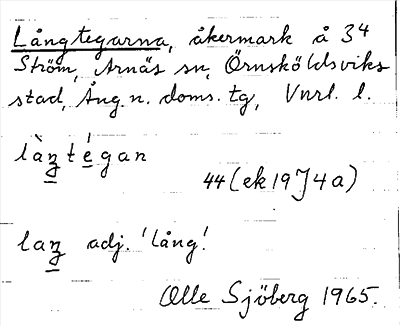 Långtegarna, åkermark å 3⁴
Ström, Arnäs sn, Örnsköldsviks
stad, Ång. n. doms. tg, Vnrl. l.
làʒtégan
44 (ek 19J4a)
laʒ adj. 'lång'.
Olle Sjöberg 1965.